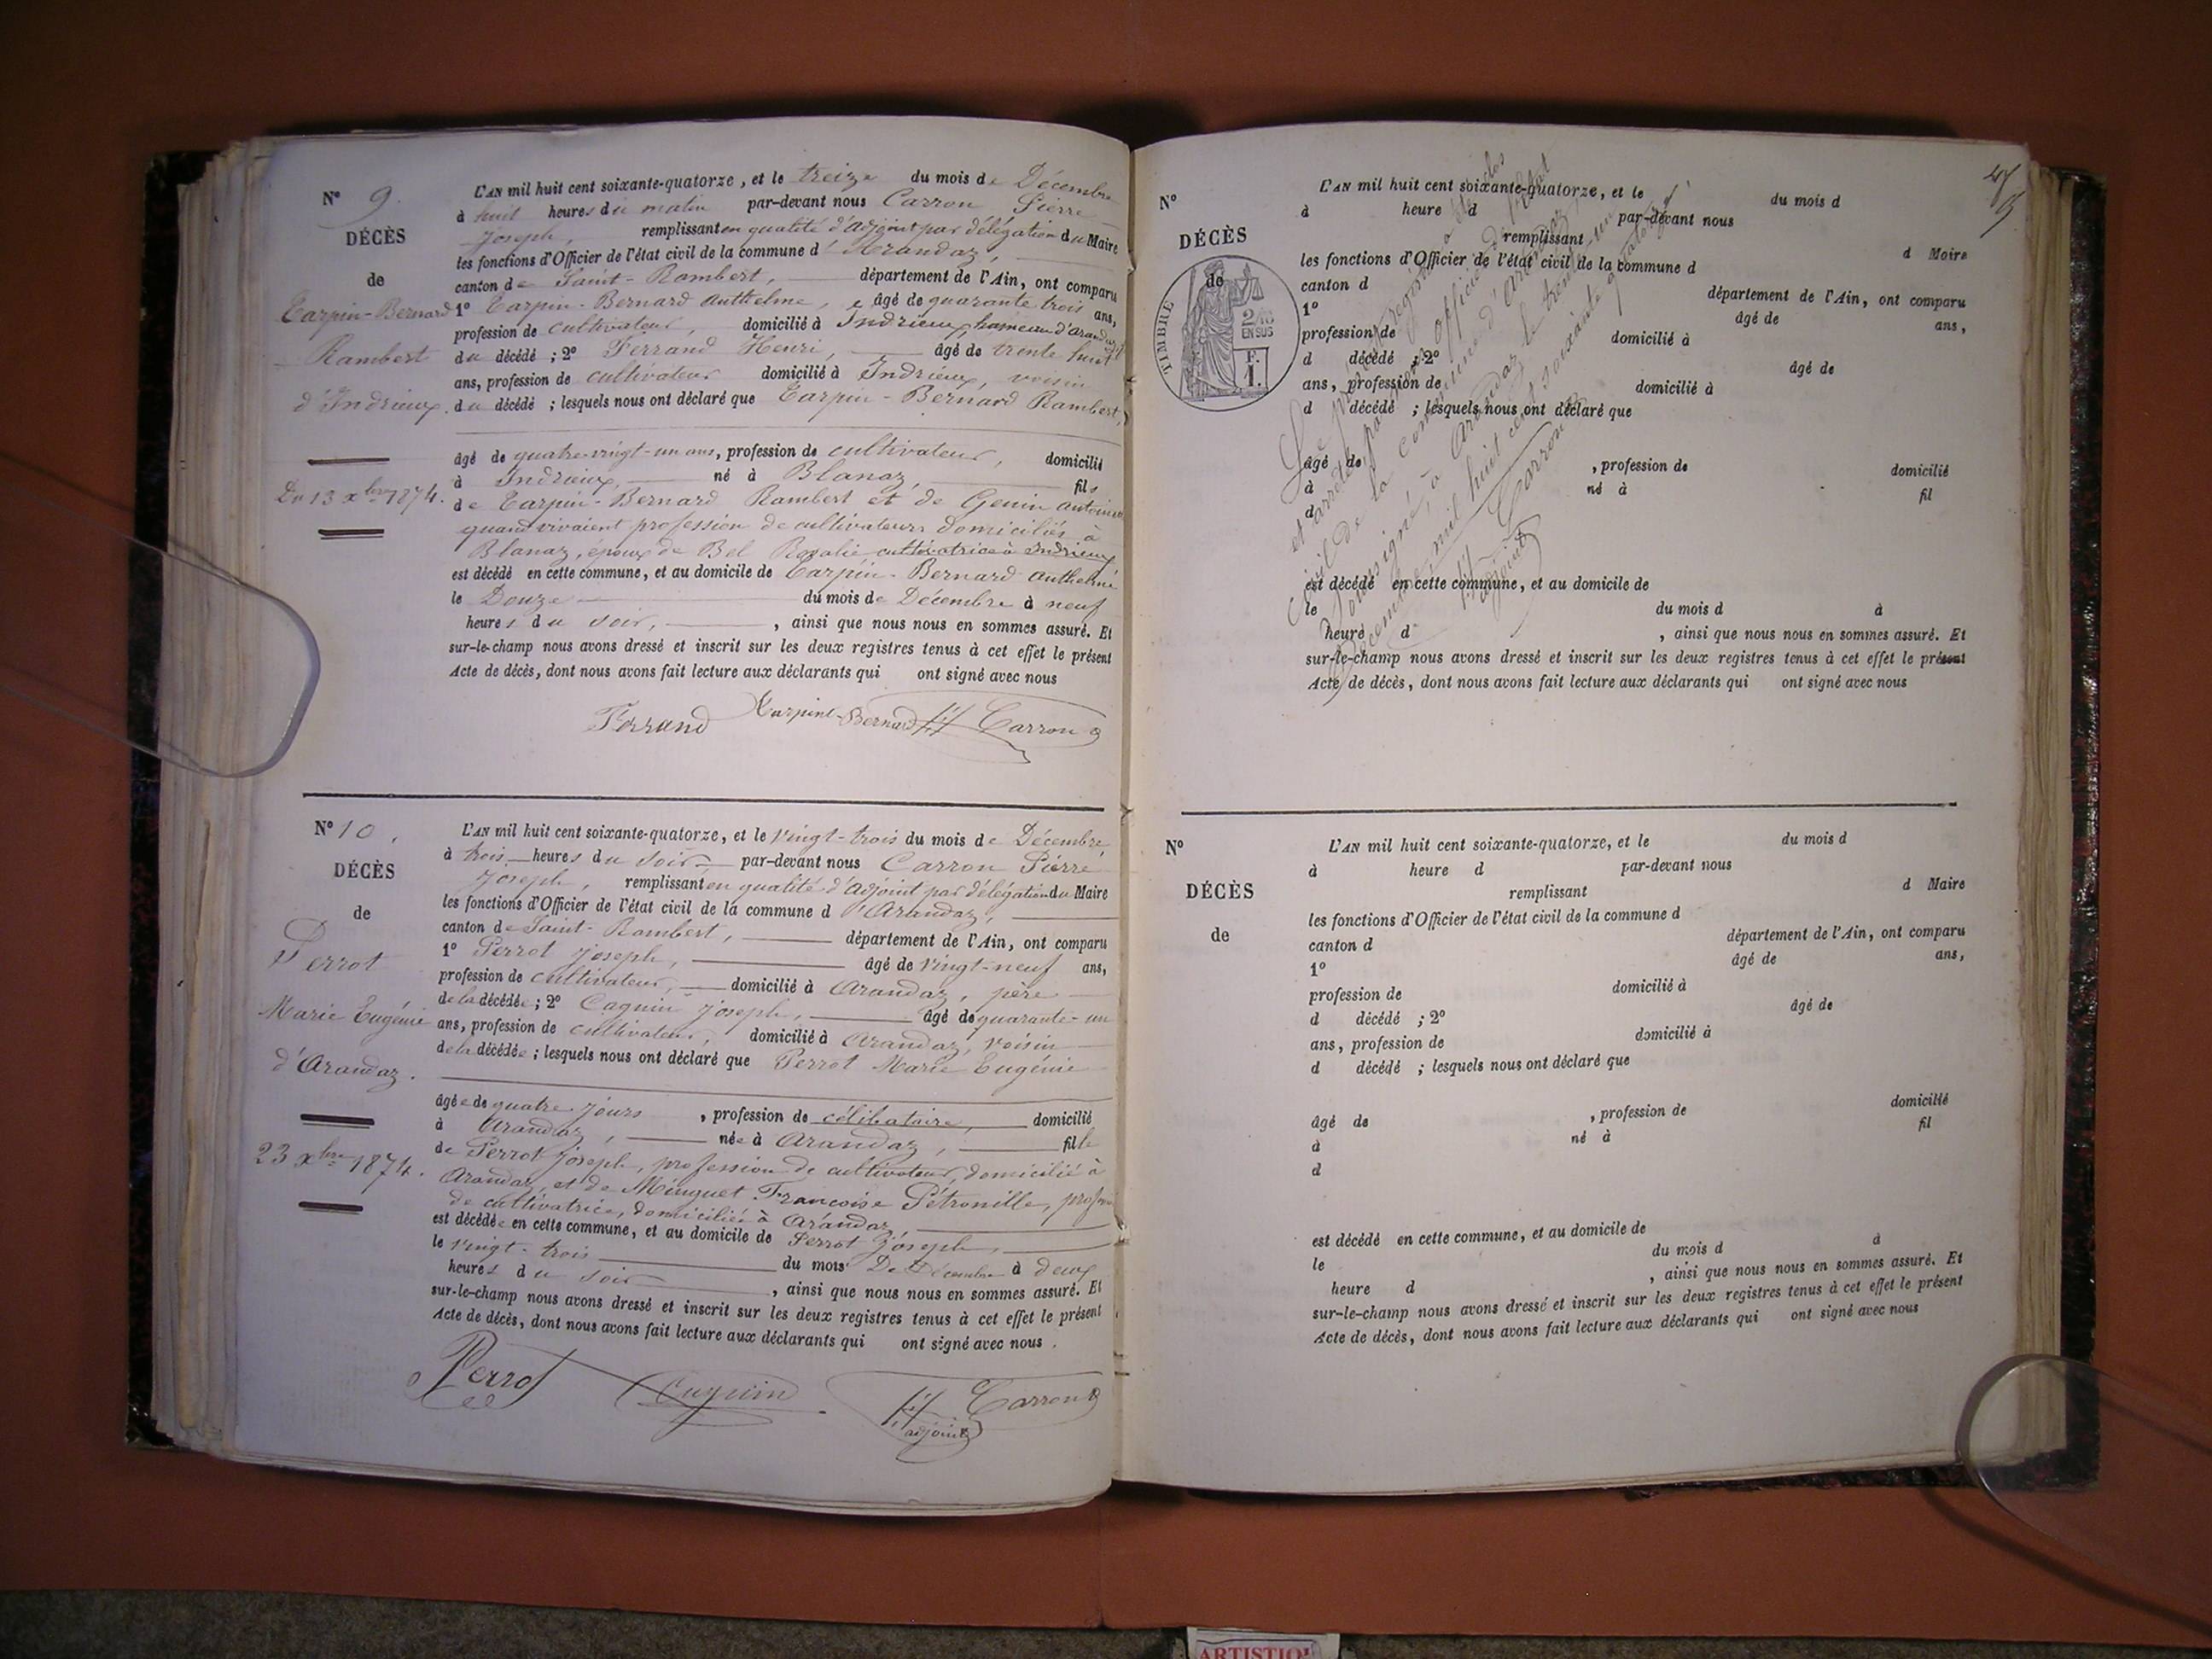 N° 9.
DÉCÈS
de
Carpin-Bernard
Rambert
d'Indrieux.
Du 13 xbre 1874.
L'AN mil huit cent soixante-quatorze, et le treize du mois de Décembre
à huit heures du matin par-devant nous Carron Pierre
Joseph, remplissant en qualité d'adjoint par délégation du Maire
les fonctions d'Officier de l'état civil de la commune d'Arandaz,
canton de Saint-Rambert, département de l'Ain, ont comparu
1° Carpin-Bernard Anthelme, âgé de quarante trois ans,
profession de cultivateur, domicilié à Indrieux hameau d'Arandaz
du décédé ; 2° Ferrand Henri, âgé de trente huit
ans, profession de cultivateur domicilié à Indrieux, voisin
du décédé ; lesquels nous ont déclaré que Carpin-Bernard Rambert,
âgé de quatre-vingt-un ans, profession de cultivateur, domicilié
à Indrieux, né à Blanaz, fils
de Carpin-Bernard Rambert et de Genin Antoinette
quand vivaient profession de cultivateurs domiciliés à
Blanaz, époux de Bel Rosalie cultivatrice à Indrieux
est décédé en cette commune, et au domicile de Carpin-Bernard Anthelme
le Douze du mois de Décembre à neuf
heures du soir, , ainsi que nous nous en sommes assuré. Et
sur-le-champ nous avons dressé et inscrit sur les deux registres tenus à cet effet le présent
Acte de décès, dont nous avons fait lecture aux déclarants qui ont signé avec nous
Ferrand Carpint-Bernard Carron
N° 10.
DÉCÈS
de
Perrot
Marie Eugénie
d'Arandaz.
23 xbre 1874.
L'AN mil huit cent soixante-quatorze, et le vingt-trois du mois de Décembre
à trois heures du soir par-devant nous Carron Pierre
Joseph, remplissant en qualité d'adjoint par délégation du Maire
les fonctions d'Officier de l'état civil de la commune d'Arandaz,
canton de Saint-Rambert, département de l'Ain, ont comparu
1° Perrot Joseph, âgé de vingt-neuf ans,
profession de cultivateur, domicilié à Arandaz, père
de la décédée ; 2° Caguin Joseph, âgé de quarante-un
ans, profession de cultivateur, domicilié à Arandaz, voisin
de la décédée ; lesquels nous ont déclaré que Perrot Marie Eugénie
âgée de quatre jours , profession de célibataire, domicilié
à Arandaz, née à Arandaz, fille
de Perrot Joseph, profession de cultivateur, domicilié à
Arandaz, et de Minguet Françoise Pétronille, profess
de cultivatrice, domiciliée à Arandaz,
est décédée en cette commune, et au domicile de Perrot Joseph
le vingt-trois du mois De Décembre à deux
heures du soir , ainsi que nous nous en sommes assuré. Et
sur-le-champ nous avons dressé et inscrit sur les deux registres tenus à cet effet le présent
Acte de décès, dont nous avons fait lecture aux déclarants qui ont signé avec nous.
Perrot Cuguin Carron
adjoint
N°
DÉCÈS
de
TIMBRE
2/10
EN SUS
F.
1.
L'AN mil huit cent soixante-quatorze, et le du mois d
à heure d par-devant nous
remplissant d Maire
les fonctions d'Officier de l'état civil de la commune d
canton d département de l'Ain, ont comparu
1° âgé de ans,
profession de domicilié à
d décédé ; 2° âgé de
ans, profession de domicilié à
d décédé ; lesquels nous ont déclaré que
âgé de , profession de domicilié
à né à fil
d
est décédé en cette commune, et au domicile de
le du mois d à
heure d , ainsi que nous nous en sommes assuré. Et
sur-le-champ nous avons dressé et inscrit sur les deux registres tenus à cet effet le présent
Acte de décès, dont nous avons fait lecture aux déclarants qui ont signé avec nous
Le présent registre a été clos
et arrêté par nous officier de l'état
civil de la commune d'Arandaz
soussigné, à Arandaz le trente-un
Décembre mil huit cent soixante quatorze
Carron
adjoint
N°
DÉCÈS
de
L'AN mil huit cent soixante-quatorze, et le du mois d
à heure d par-devant nous
remplissant d Maire
les fonctions d'Officier de l'état civil de la commune d
canton d département de l'Ain, ont comparu
1° âgé de ans,
profession de domicilié à
d décédé ; 2° âgé de
ans, profession de domicilié à
d décédé ; lesquels nous ont déclaré que
âgé de , profession de domicilié
à né à fil
d
est décédé en cette commune, et au domicile de
le du mois d à
heure d , ainsi que nous nous en sommes assuré. Et
sur-le-champ nous avons dressé et inscrit sur les deux registres tenus à cet effet le présent
Acte de décès, dont nous avons fait lecture aux déclarants qui ont signé avec nous